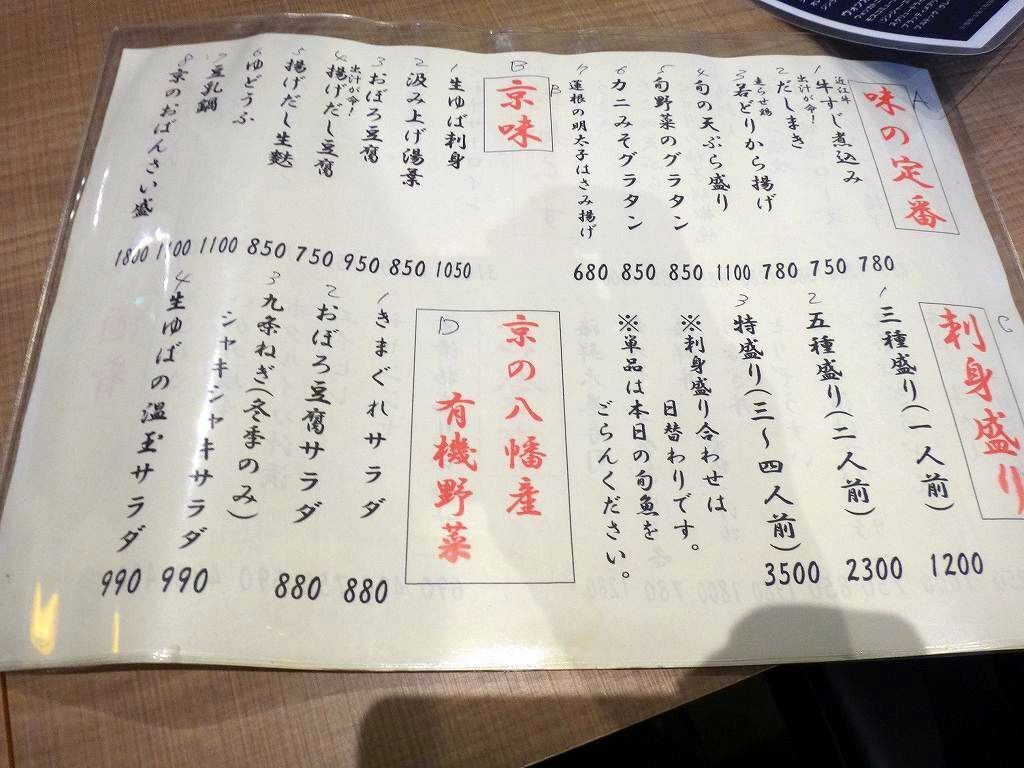 A
味の定番
近江牛
1 牛すじ煮込み 780
出汁が命!
2 だしまき 750
走らせ鶏
3 若どりから揚げ 780
4 旬の天ぷら盛り 1100
5 旬野菜のグラタン 850
6 カニみそグラタン 850
7 蓮根の明太子はさみ揚げ 680
B
京味
1 生ゆば刺身 1050
2 汲み上げ湯葉 850
3 おぼろ豆腐 950
出汁が命!
4 揚げだし豆腐 750
5 揚げだし生麩 850
6 ゆどうふ 1100
7 豆乳鍋 1100
8 京のおばんさい盛 1800
C
刺身盛り
1 三種盛り(一人前) 1200
2 五種盛り(二人前) 2300
3 特盛り(三〜四人前) 3500
※刺身盛り合わせは
日替わりです。
※単品は本日の旬魚を
ごらんください。
D
京の八幡産
有機野菜
1 きまぐれサラダ 880
2 おぼろ豆腐サラダ 880
3 九条ねぎ(冬季のみ)
シャキシャキサラダ 990
4 生ゆばの温玉サラダ 990